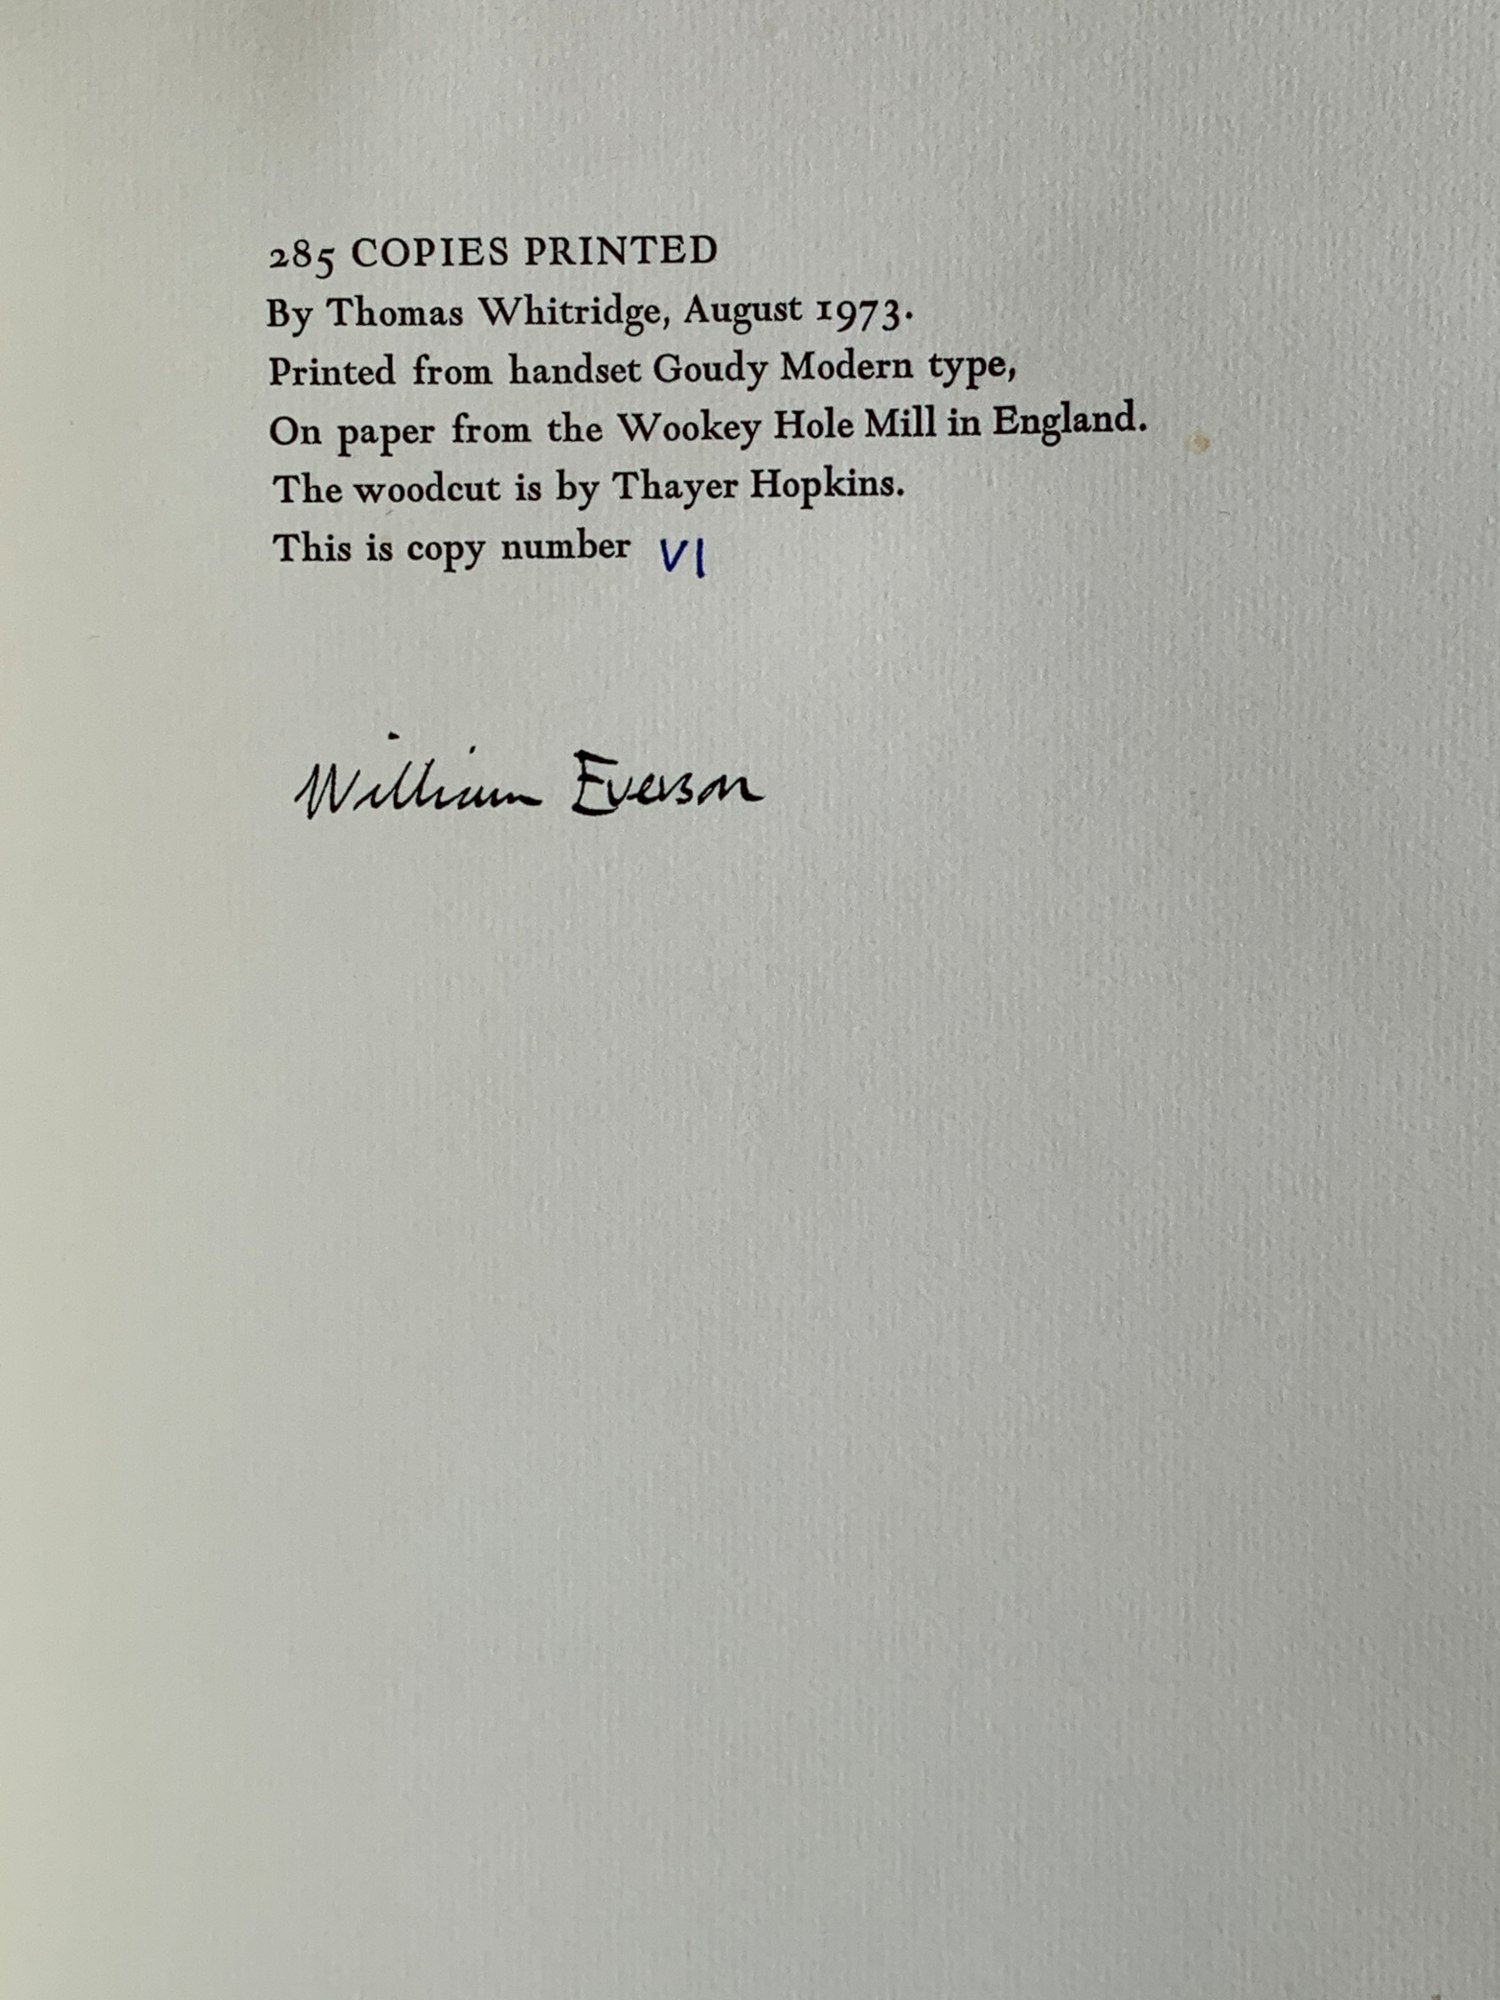 285 COPIES PRINTED
By Thomas Whitridge, August 1973.
Printed from handset Goudy Modern type,
On paper from the Wookey Hole Mill in England.
The woodcut is by Thayer Hopkins.
This is copy number VI
William Everson